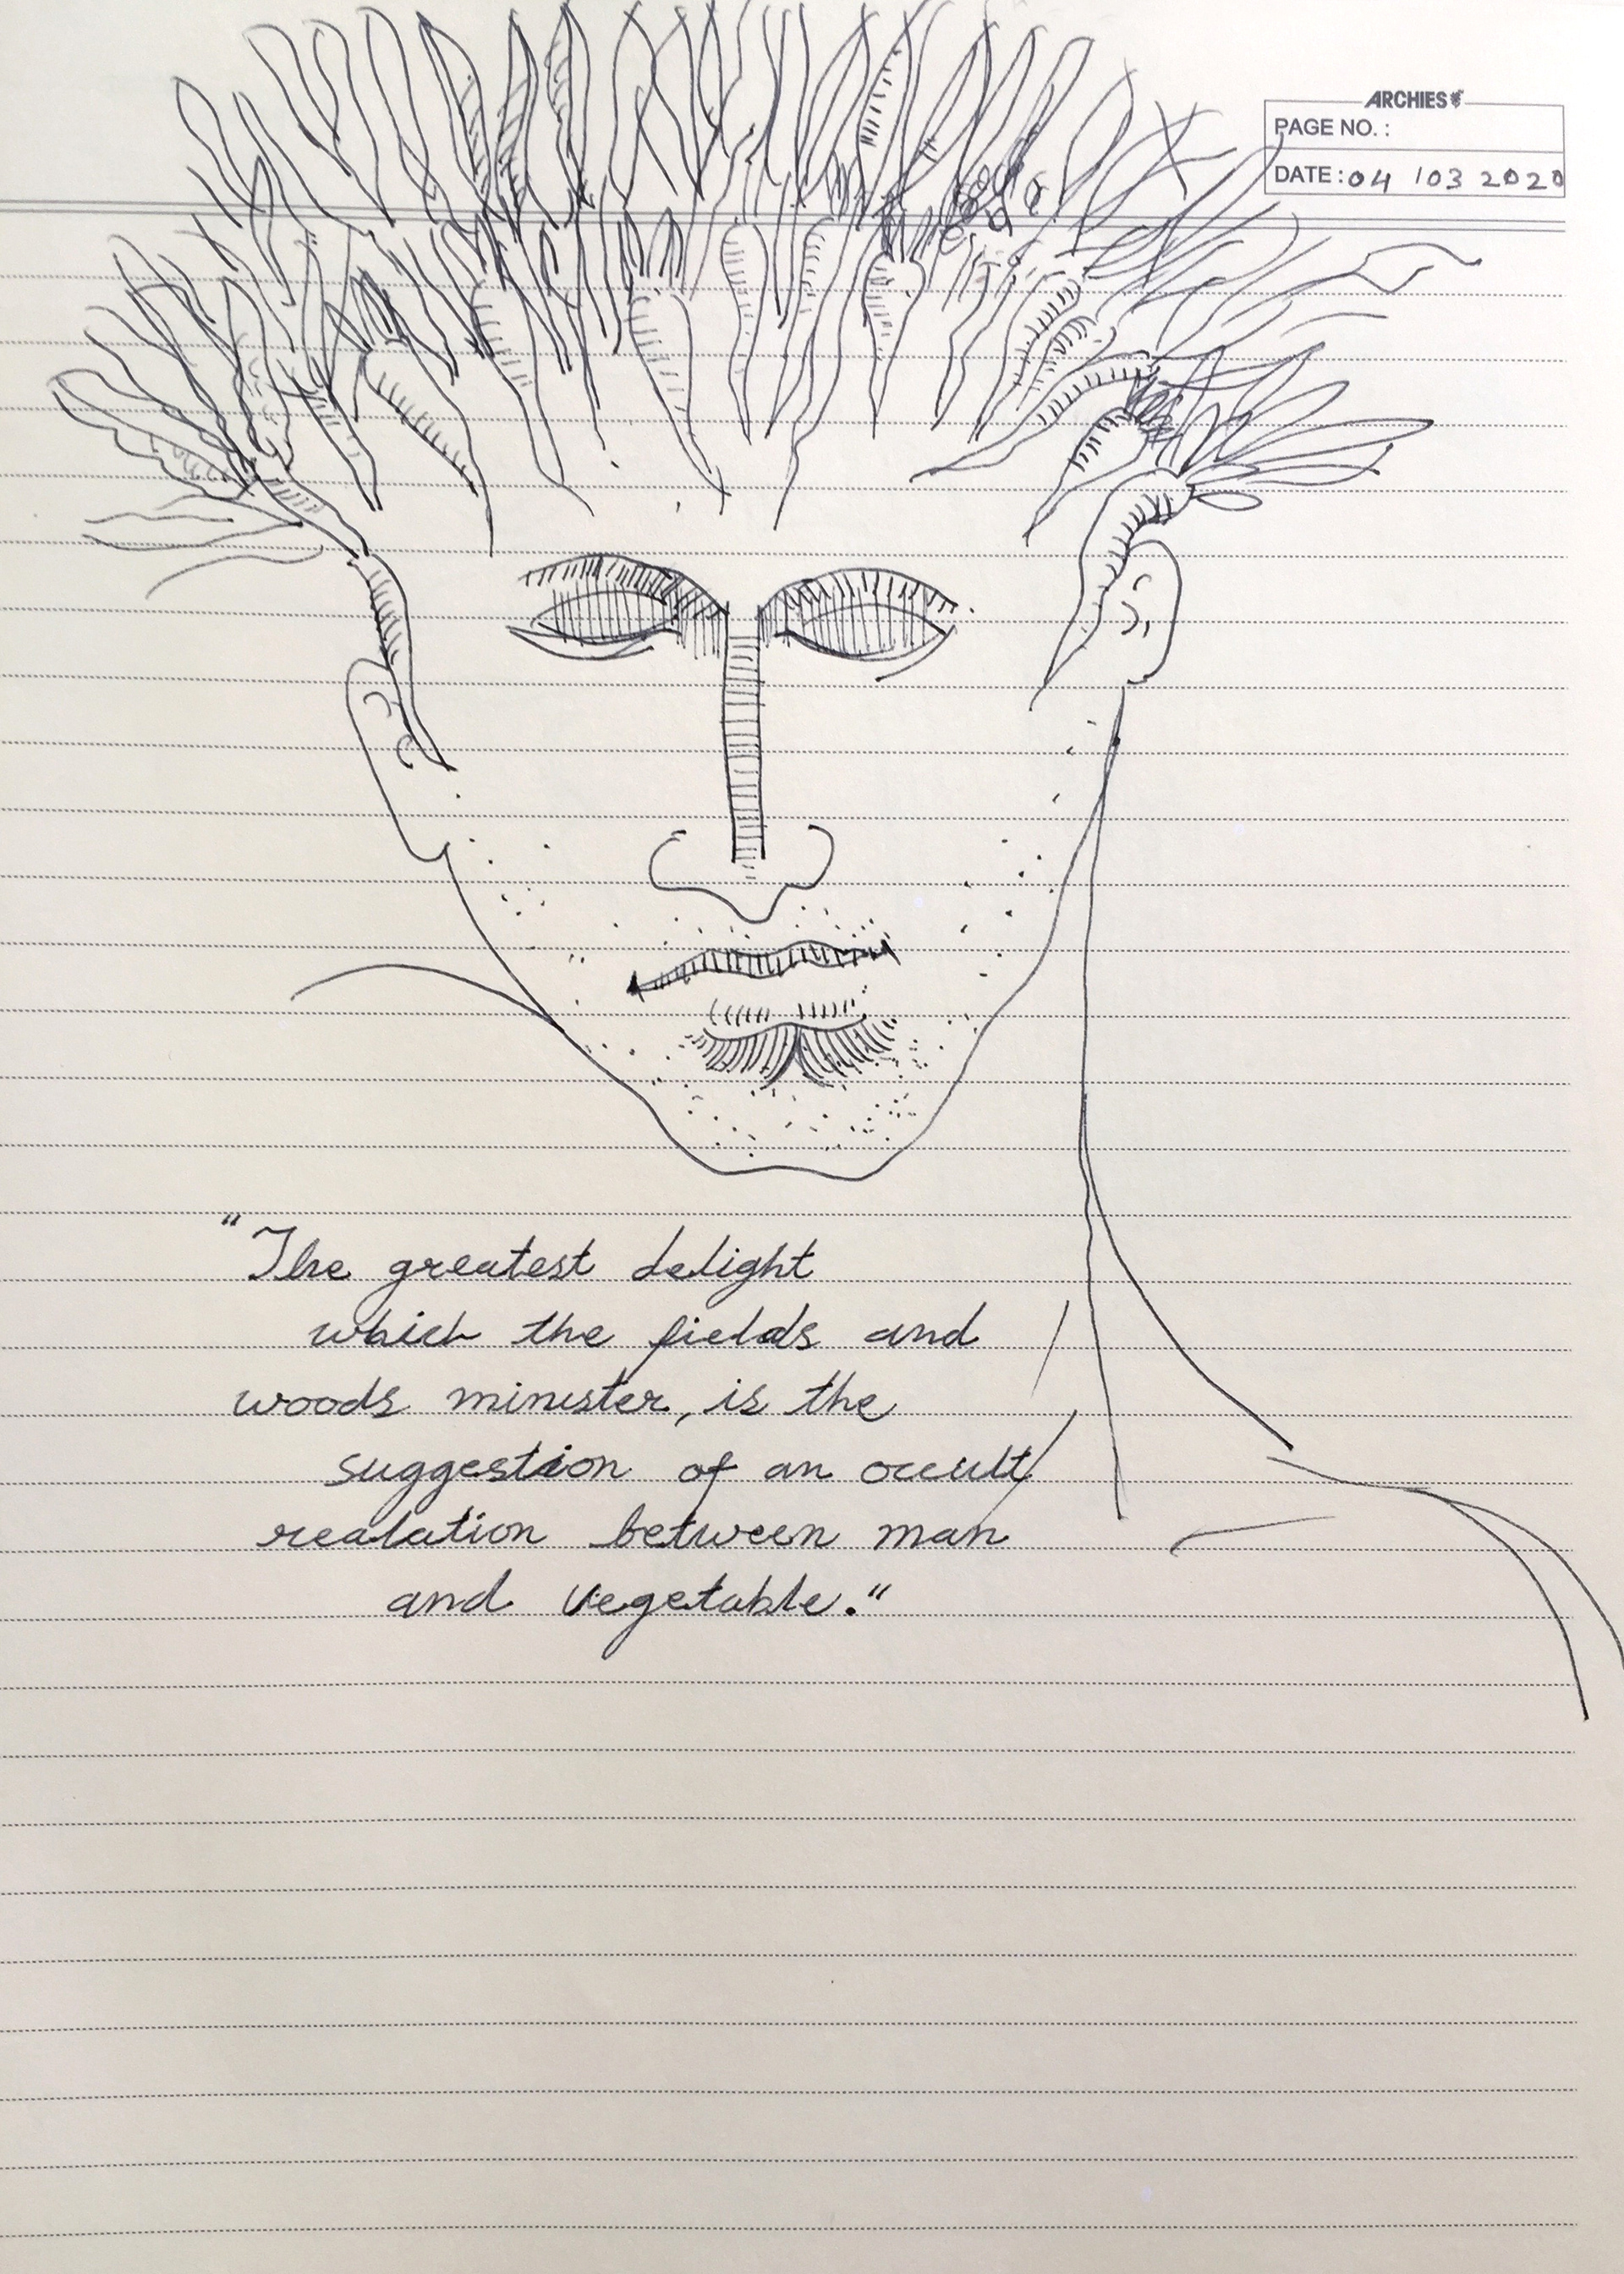 ARCHIES
PAGE NO. :
DATE : 04 103 2020
"The greatest delight
which the fields and
woods minister, is the
suggestion of an occult
realation between man
and vegetable."